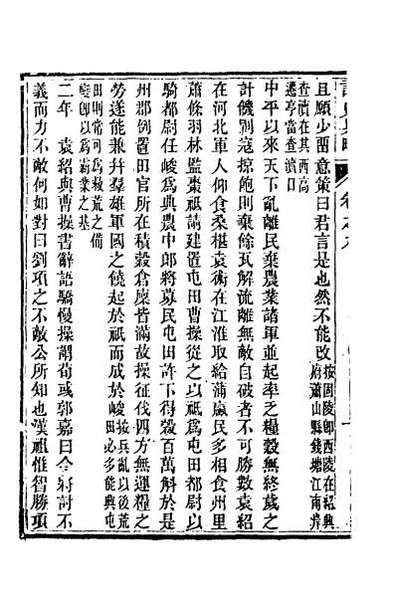 且願少酉意策曰君言是也然不能改按固陵卽西陵在紹興府蕭山縣錢塘江南岸
查瀆在其西高遷亭當查瀆口
中平以來天下亂離民棄農業諸軍並起率乏糧穀無終歲之
計饑則寇掠飽則棄餘瓦解流離無敵自破者不可勝數袁紹
在河北軍人仰食桑椹袁術在江淮取給蒲蠃民多相食州里
蕭條羽林監棗祗請建置屯田曹操從之以祗爲屯田都尉以
騎都尉任峻爲典農中郎將募民屯田許下得穀百萬斛於是
州郡例置田官所在積穀倉廩皆滿故操征伐四方無運糧之
勞遂能兼幷羣雄軍國之饒起於祗而成於峻按兵亂以後荒田必多能興屯
田則常可爲救荒之備變卽以爲霸業之基
二年 袁紹與曹操書辭語驕慢操謂荀彧郭嘉曰今將討不
義而力不敵何如對曰劉項之不敵公所知也漢祖惟智勝項